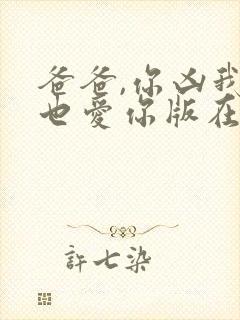 爸爸,你凶我
也爱你版在
許七染